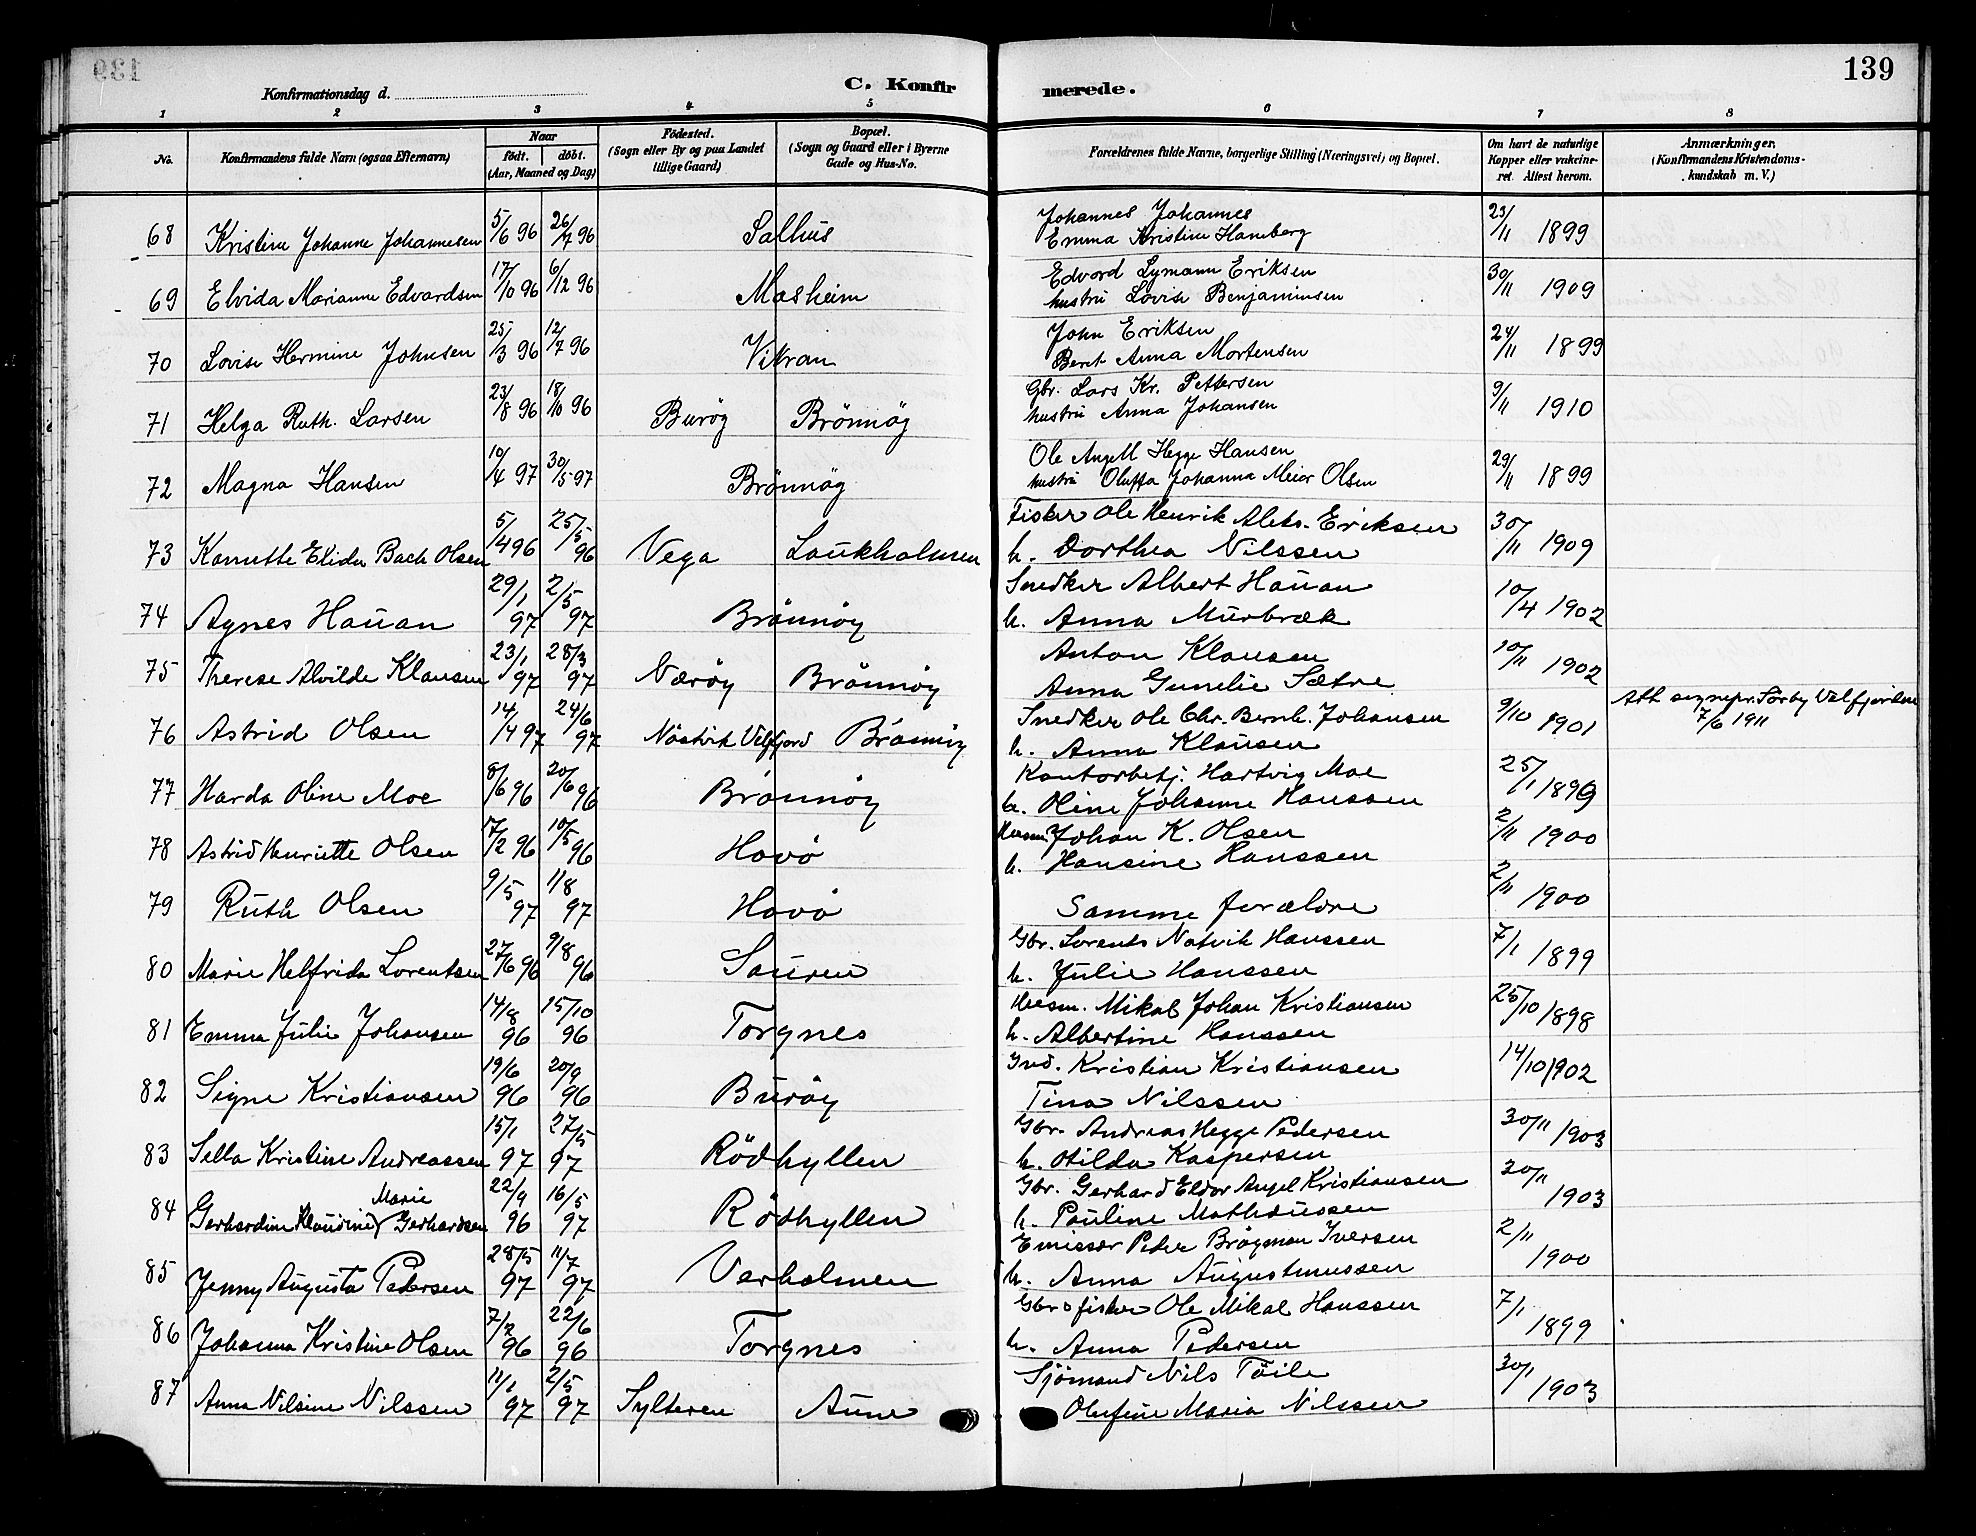 139
Konfirmationsdag d.
C. Konfirmerede.
1 2 3 4 5 6 7 8
No. Konfirmandens fulde Navn (ogsaa Efternavn) Naar født. døbt. (Aar, Maaned og Dag) Födested. (Sogn eller By og paa Landet tillige Gaard) Bopæl. (Sogn og Gaard eller i Byerne Gade og Hus-No. Forældrenes fulde Navne, borgerlige Stilling (Næringsvei) og Bopæl. Om havt de naturlige Kopper eller vakcineret. Attest herom. Anmærkninger, (Konfirmandens Kristendomskundskab m. V.)
68 Kristine Johanne Johannesen 5/6 96 26/7 96 Salhus Johannes Johannes 23/11 1899
Emma Kristine Hamberg
69 Elvida Marianne Edvardsen 17/10 96 6/12 96 Mosheim Edvard Lymann Eriksen 30/11 1909
hustru Lovise Benjaminsen
70 Lovise Hermine Johnsen 25/3 96 12/7 96 Vikran John Eriksen 24/11 1899
Beret Anna Mortensen
71 Helga Ruth. Larsen 23/8 96 18/10 96 Burög Brönnög Gbr. Lars Kr. Pettersen 9/11 1910
hustru Anna Johansen
72 Magna Hansen 10/4 97 30/5 97 Brönnög Ole Angell Hegge Hansen 29/11 1899
hustru Oluffa Johanna Meier Olsen
73 Kamutte Elida Bach Olsen 5/4 96 25/5 96 Vega Laukholmen Fisker Ole Henrik Aleks. Eriksen 30/11 1909
h. Dorthea Nilssen
74 Agnes Hauan 29/1 97 2/5 97 Brönnöy Snedker Albert Hauan 10/4 1902
h. Anna Murbræk
75 Therese Alvilde Klausen 23/1 97 28/3 97 Næröy Brönnöy Anton Klausen 10/11 1902
Anna Gunelie Sætre
76 Astrid Olsen 14/4 97 24/6 97 Nöstvik Velfjord Brönnöy Snedker Ole Chr. Bernh. Johansen 9/10 1901 Att sognepr. Sørby Velfjorden 7/6 1911
h. Anna Klausen
77 Harda Oline Moe 8/6 96 20/6 96 Brönnöy Kontorbetj. Hartvig Moe 25/1 1899
h. Oline Johanne Hanssen
78 Astrid Henriette Olsen 17/2 96 10/5 96 Havö Husm Johan K. Olsen 2/11 1900
h. Hansine Hanssen
79 Ruth Olsen 9/5 97 1/8 97 Havö Samme forældre 2/11 1900
80 Marie Helfrida Lorentsen 27/6 96 9/8 96 Sauren Gbr. Lorents Natvik Hanssen 7/1 1899
h. Julie Hanssen
81 Emma Julie Johansen 14/8 96 15/10 96 Torgnes Husm. Mikal Johan Kristiansen 25/10 1898
h. Albertine Hanssen
82 Signe Kristiansen 19/6 96 20/9 96 Buröy Ind. Kristian Kristiansen 14/10 1902
Tina Nilssen
83 Sella Kristine Andreassen 15/1 97 27/5 97 Rödhyllen Gbr. Andreas Hegge Pedersen 30/11 1903
h. Otilda Kaspersen
84 Gerhardine Klaudine Marie Gerhardsen 22/9 96 16/5 97 Rödhyllen Gbr. Gerhard Eldor Angel Kristiansen 30/11 1903
h. Pauline Mathæussen
85 Jenny Augusta Pedersen 28/5 97 11/7 97 Verholmen Emissær Peder Brögman Iversen 2/11 1900
h. Anna Augustinussen
86 Johanna Kristine Olsen 7/2 96 22/6 96 Torgnes Gbr o fisker Ole Mikal Hanssen 7/1 1899
h. Anna Pedersen
87 Anna Nilsine Nilssen 11/1 97 2/5 97 Sylteren Aune Sjömand Nils Töile 30/1 1903
Olufine Maria Nilssen